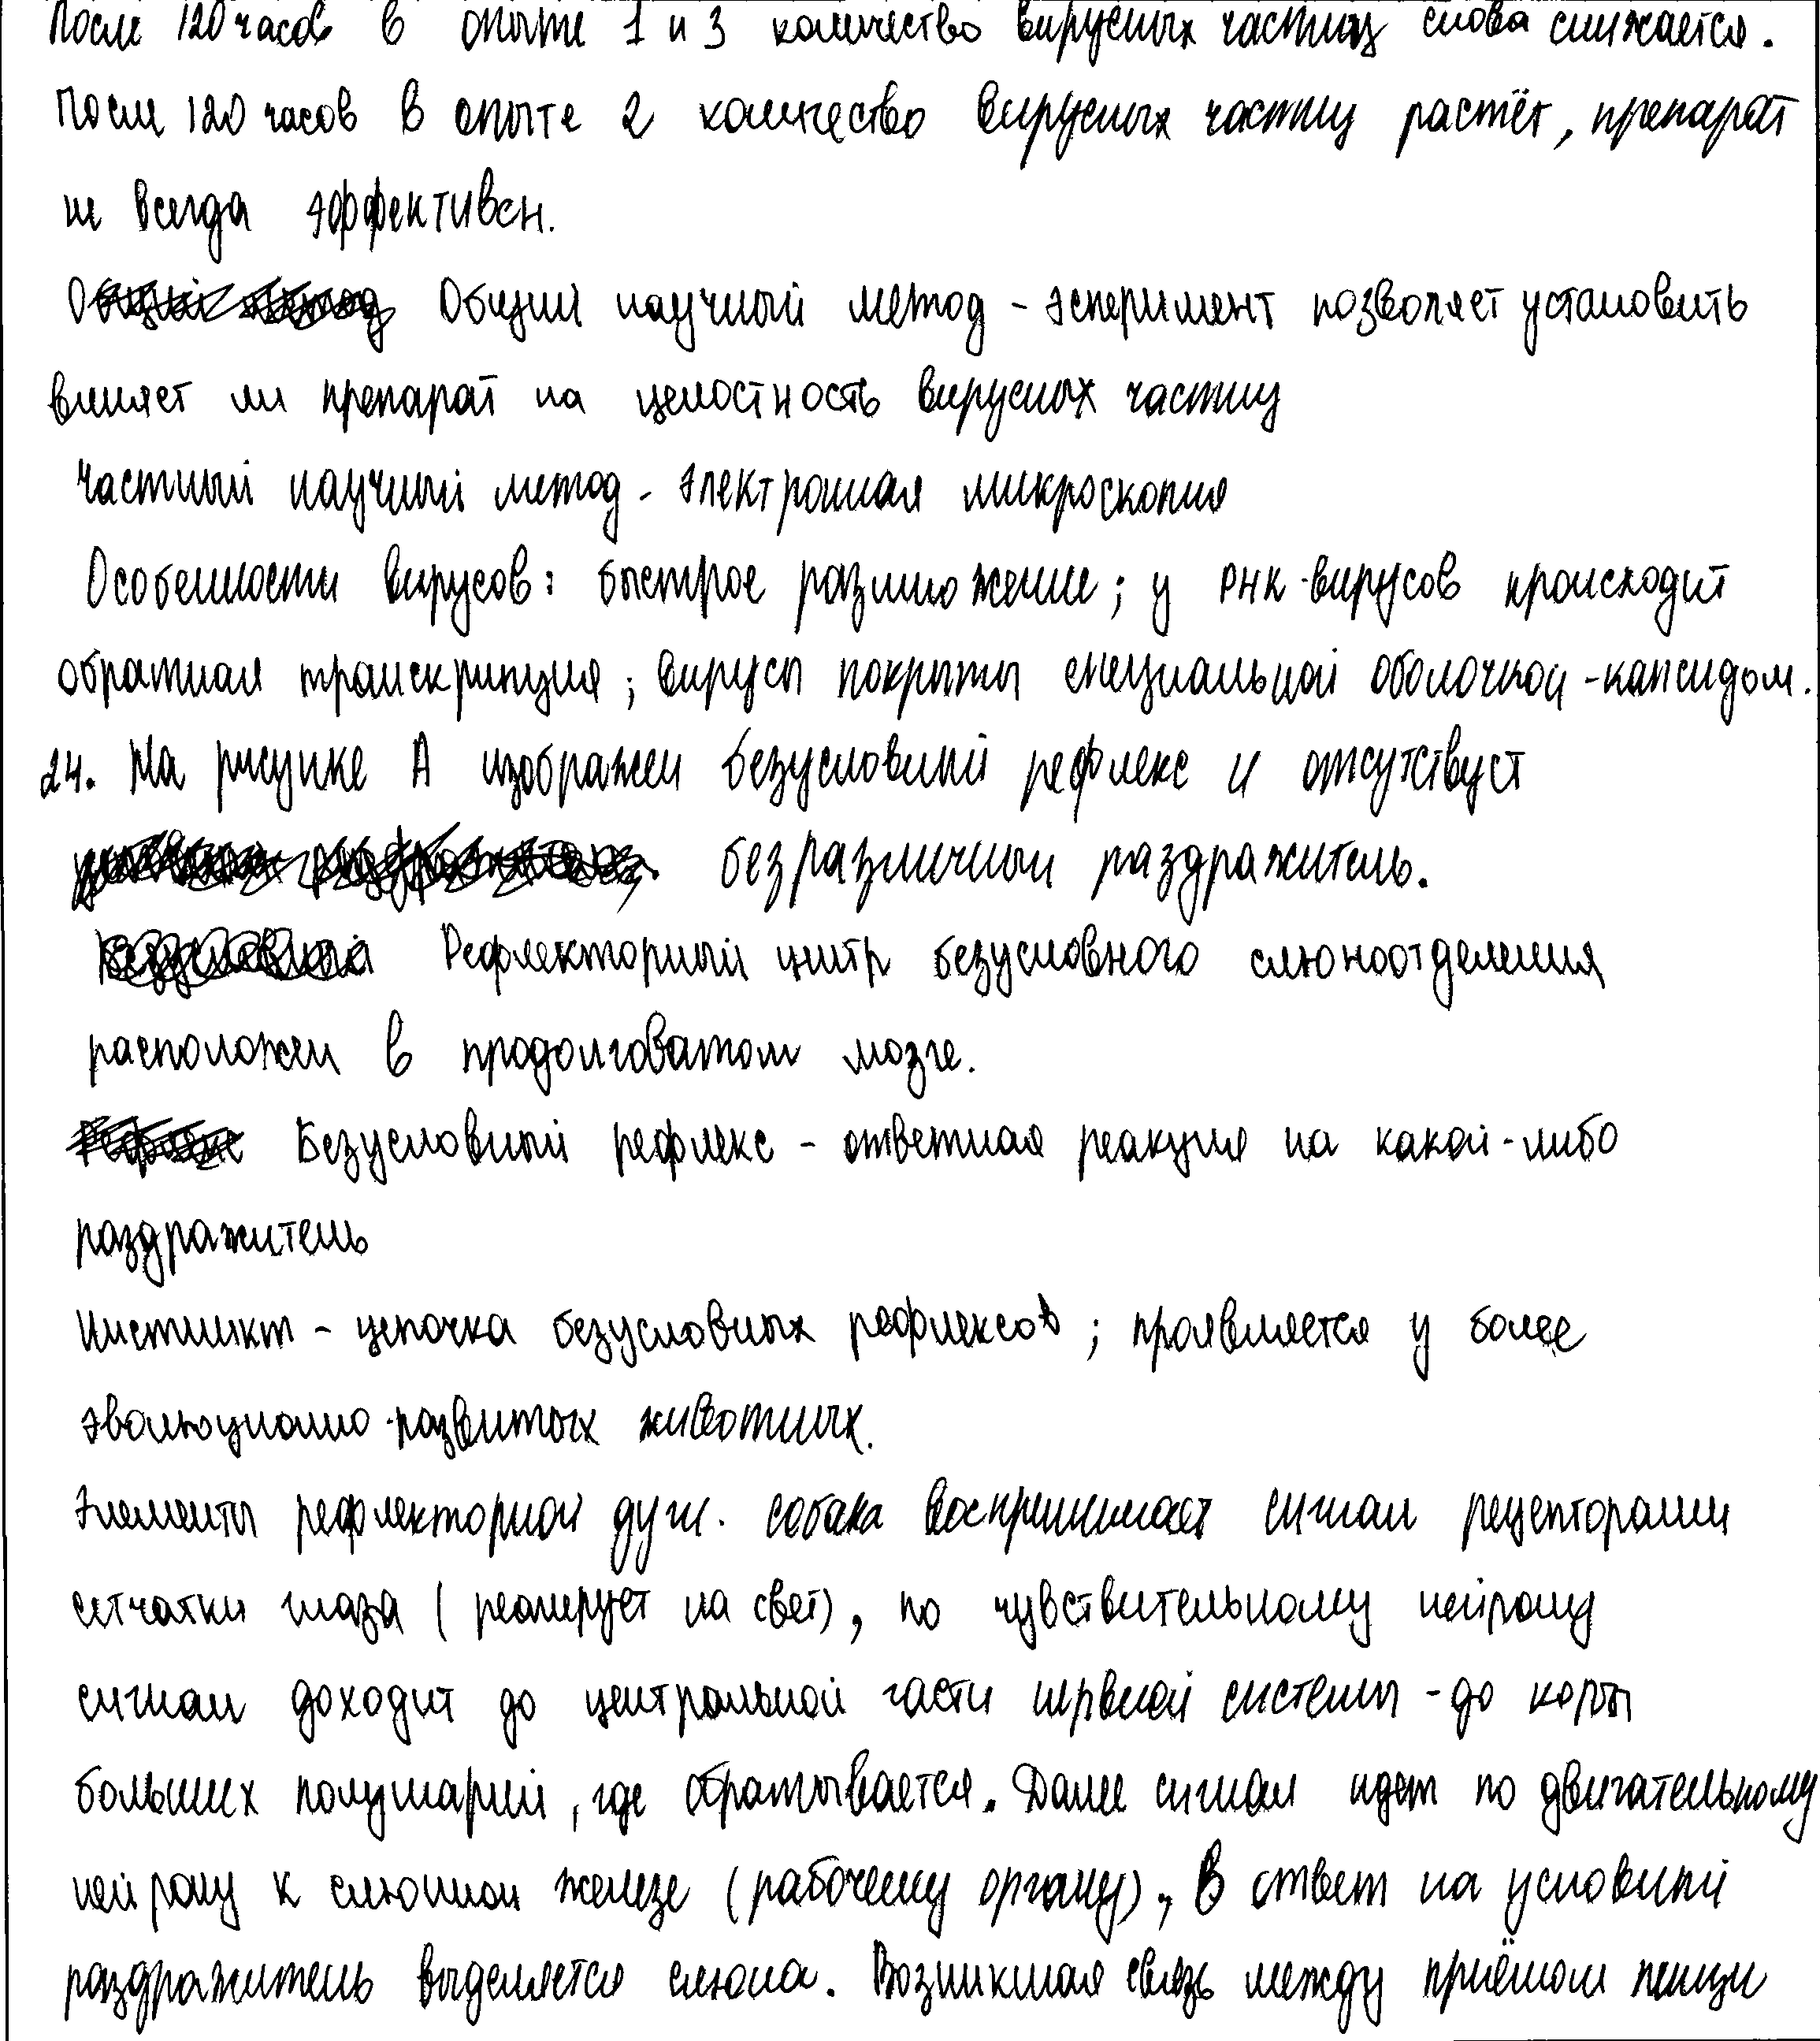 После 120 часов в опыте 1 и 3 количество вирусных частиц снова снижается.
После 120 часов в опыте 2 количество вирусных частиц растёт, препарат
не всегда эффективен.
Общий научный метод - эсперимент позволяет установить
влияет ли препарат на целостность вирусных частиц
Частный научный метод - электронная микроскопия
Особенности вирусов: быстрое размножение; у РНК-вирусов происходит
обратная транскрипция; вирусы покрыты специальной оболочкой - капсидом.
24. На рисунке А изображен безусловный рефлекс и отсутствует
безразличный раздражитель.
Рефлекторный центр безусловного слюноотделения
расположен в продолговатом мозге.
Безусловный рефлекс - ответная реакция на какой-либо
раздражитель
Инстинкт - цепочка безусловных рефлексов; проявляется у более
эволюционно-развитых животных.
Элементы рефлекторной дуги. собака воспринимает сигнал рецепторами
сетчатки глаза (реагирует на свет), по чувствительному нейрону
сигнал доходит до центральной части нервной системы - до коры
больших полушарий, где обратывается. Далее сигнал идет по двигательному
нейрону к слюнной железе (рабочему органу), В ответ на условный
раздражитель выделяется слюна. Возникшая связь между приёмом пищи